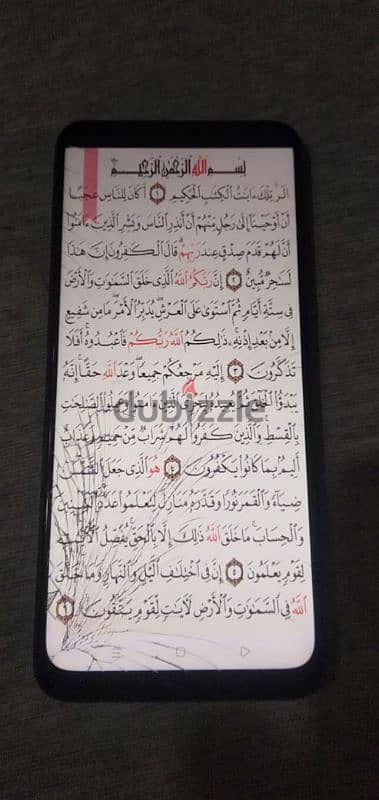 بِسْمِ اللَّهِ الرَّحْمَٰنِ الرَّحِيمِ
الٓر ۚ تِلْكَ ءَايَٰتُ ٱلْكِتَٰبِ ٱلْحَكِيمِ ١ أَكَانَ لِلنَّاسِ عَجَبًا
أَنْ أَوْحَيْنَآ إِلَىٰ رَجُلٍ مِّنْهُمْ أَنْ أَنذِرِ ٱلنَّاسَ وَبَشِّرِ ٱلَّذِينَ ءَامَنُوٓا۟
أَنَّ لَهُمْ قَدَمَ صِدْقٍ عِندَ رَبِّهِمْ ۗ قَالَ ٱلْكَٰفِرُونَ إِنَّ هَٰذَا
لَسَٰحِرٌ مُّبِينٌ ٢ إِنَّ رَبَّكُمُ ٱللَّهُ ٱلَّذِى خَلَقَ ٱلسَّمَٰوَٰتِ وَٱلْأَرْضَ
فِى سِتَّةِ أَيَّامٍ ثُمَّ ٱسْتَوَىٰ عَلَى ٱلْعَرْشِ ۖ يُدَبِّرُ ٱلْأَمْرَ ۖ مَا مِن شَفِيعٍ
إِلَّا مِنۢ بَعْدِ إِذْنِهِۦ ۚ ذَٰلِكُمُ ٱللَّهُ رَبُّكُمْ فَٱعْبُدُوهُ ۚ أَفَلَا
تَذَكَّرُونَ ٣ إِلَيْهِ مَرْجِعُكُمْ جَمِيعًا ۖ وَعْدَ ٱللَّهِ حَقًّا ۚ إِنَّهُۥ
يَبْدَؤُا۟ ٱلْخَلْقَ ثُمَّ يُعِيدُهُۥ لِيَجْزِىَ ٱلَّذِينَ ءَامَنُوا۟ وَعَمِلُوا۟ ٱلصَّٰلِحَٰتِ
dubizzle
بِٱلْقِسْطِ ۚ وَٱلَّذِينَ كَفَرُوا۟ لَهُمْ شَرَابٌ مِّنْ حَمِيمٍ وَعَذَابٌ
أَلِيمٌۢ بِمَا كَانُوا۟ يَكْفُرُونَ ٤ هُوَ ٱلَّذِى جَعَلَ ٱلشَّمْسَ
ضِيَآءً وَٱلْقَمَرَ نُورًا وَقَدَّرَهُۥ مَنَازِلَ لِتَعْلَمُوا۟ عَدَدَ ٱلسِّنِينَ
وَٱلْحِسَابَ ۚ مَا خَلَقَ ٱللَّهُ ذَٰلِكَ إِلَّا بِٱلْحَقِّ ۚ يُفَصِّلُ ٱلْءَايَٰتِ
لِقَوْمٍ يَعْلَمُونَ ٥ إِنَّ فِى ٱخْتِلَٰفِ ٱلَّيْلِ وَٱلنَّهَارِ وَمَا خَلَقَ
ٱللَّهُ فِى ٱلسَّمَٰوَٰتِ وَٱلْأَرْضِ لَءَايَٰتٍ لِّقَوْمٍ يَتَّقُونَ ٦